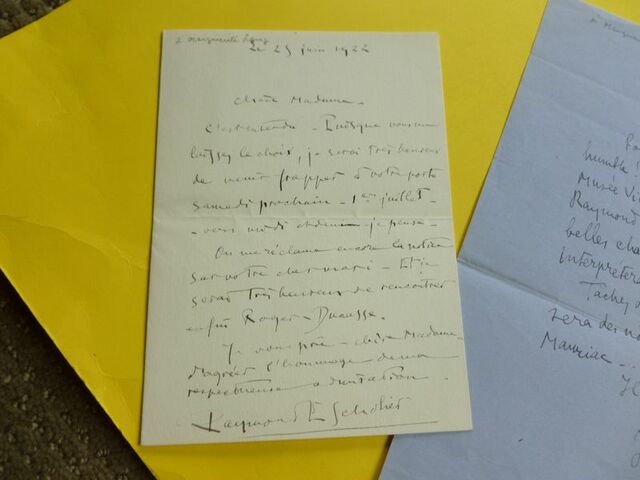 à Marguerite Long
Le 25 juin 1922
Chère Madame.
C'est entendu - Puisque vous me
laissez le choix, je serai très heureux
de venir frapper à votre porte
samedi prochain - 1er juillet -
- vers midi je pense -
On me réclame encore la notice
sur votre cher mari - Et je
serai très heureux de rencontrer
enfin Roger-Ducasse.
Je vous prie - chère Madame -
d'agréer l'hommage de ma
respectueuse admiration.
Raymond Escholier
à
humble
Musée Vic
Raymond
belles cha
interpréter
Tachez
sera des no
Mauriac...